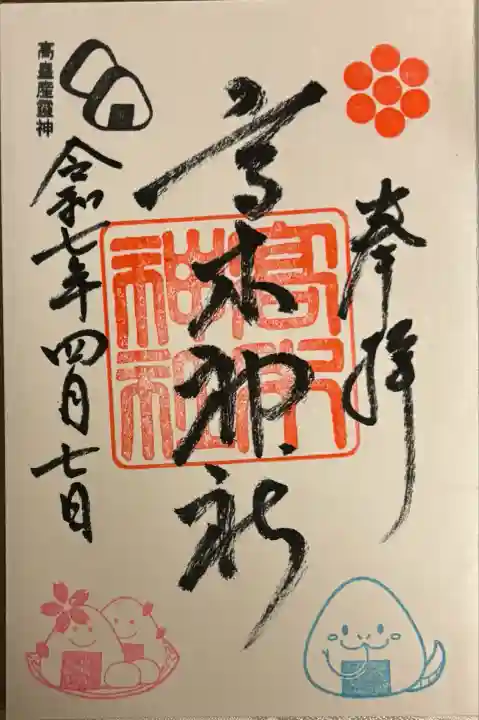 奉拝
高木神社
高皇産霊神
令和七年四月七日